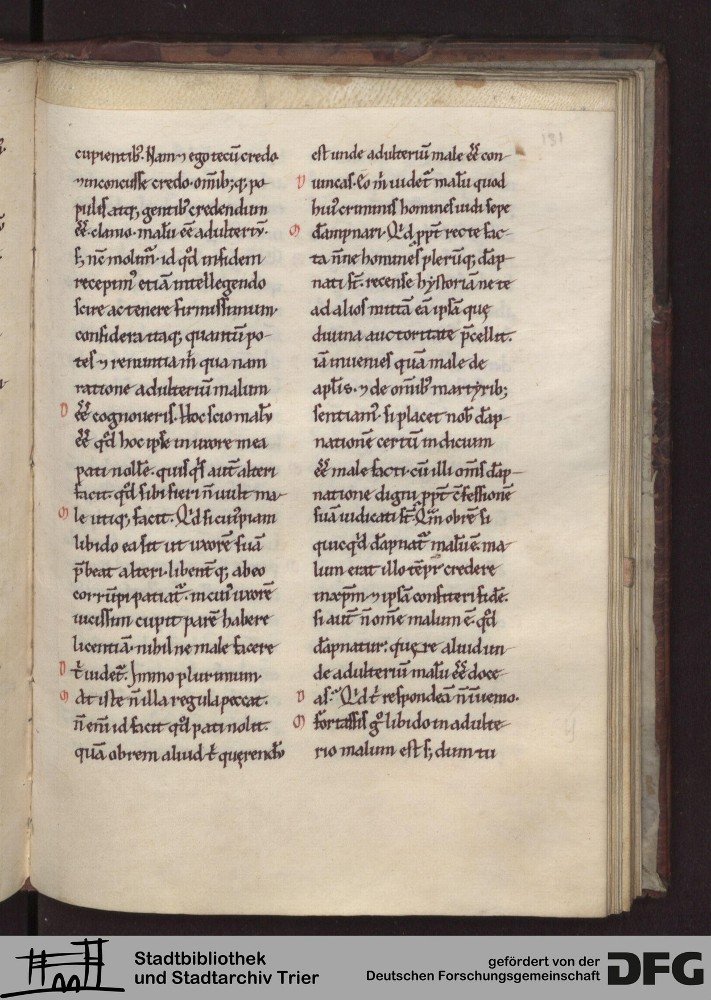 cupientib; Nam ⁊ ego tecū credo
⁊ inconcusse credo. omib; q; po-
pulis atq; gentib; credendum
ēē clamo. malū ēē adulteriū.
S; nc̄ molim̄ id qd̄ in fidem
recepim' etiā intellegendo
scire ac tenere firmissimum.
considera itaq; quantū po-
tes ⁊ renuntia m̄ qua nam
ratione adulteriū malum
D ēē cognoveris. Hoc scio malū
ēē qd̄ hoc ipse in uxore mea
pati nollē. quisqs aut̄ alteri
facit. qd̄ sibi fieri n̄ uult ma-
ꝏ le utiq; facit. Qd̄ si cui'piam
libido ea sit ut uxorē suā
p̄beat alteri. libentq; ab eo
corrūpi patiat̄. in cui' uxorē
uicissim cupit parē habere
licentiā. nihilne male facere
D t' uidet̄. Immo plurimum.
ꝏ At iste n̄ illa regula peccat.
n̄ eni id facit qd̄ pati nolit.
quā obrem aliud t' querendū
131
est unde adulteriū male ēē con-
D uincas. Eo m̄ uidet̄ malū quod
hui' criminis homines uidi sepe
ꝏ dāpnari. Qd ppt̄ recte fac-
ta n̄ne homines plerūq; dāp-
nati st̄. recense hystoriā ne te
ad alios mittā eā ipsā quę
diuina auctoritate p̄cellit.
iā inuenies quā male de
apl̄is. ⁊ de omib; martyrib;
sentiam'. si placet nob̄ dāp-
nationē certū indicium
ēē male facti. cū illi om̄s dāp-
natione digni ppt̄ c̄fessionē
suā iudicati st̄. Qm̄ obrē si
quicqd dāpnat̄ malū ē. ma-
lum erat illo tēpr̄ credere
in xp̄m ⁊ ipsā confiteri fidē.
si aut̄ n̄ om̄e malum ē. qd̄
dāpnatur. quęre aliud un-
de adulteriū malū ēē doce-
D as. Qd t' respondeā n̄ inuenio.
ꝏ fortassis g° libido in adulte-
rio malum est s; dum tu
Stadtbibliothek
und Stadtarchiv Trier
gefördert von der
Deutschen Forschungsgemeinschaft
DFG